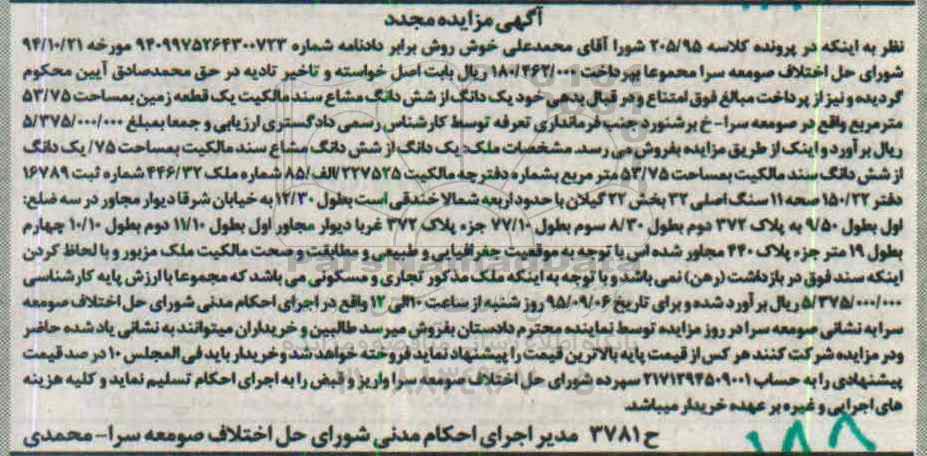 آگهی مزایده مجدد
نظر به اینکه در پرونده کلاسه ۲۰۵/۹۵ شورا آقای محمدعلی خوش روش برابر دادنامه شماره ۹۴۰۹۹۷۵۲۶۴۳۰۰۷۲۳ مورخه ۹۴/۱۰/۲۱
شورای حل اختلاف صومعه سرا محموعا بپرداخت ۱۸۰/۴۶۲/۰۰۰ ریال بابت اصل خواسته و تاخیر تادیه در حق محمدصادق آیین محکوم
گردیده و نیز از پرداخت مبالغ فوق امتناع و در قبال بدهی خود یک دانگ از شش دانگ مشاع سند مالکیت یک قطعه زمین بمساحت ۵۳/۷۵
مترمربع واقع در صومعه سرا-خ برشنورد جنب فرمانداری تعرفه توسط کارشناس رسمی دادگستری ارزیابی و جمعا بمبلغ ۵/۳۷۵/۰۰۰/۰۰۰
ریال برآورد و اینک از طریق مزایده بفروش می رسد. مشخصات ملک: یک دانگ از شش دانگ مشاع سند مالکیت بمساحت ۷۵/ یک دانگ
از شش دانگ سند مالکیت بمساحت ۵۳/۷۵ متر مربع بشماره دفترچه مالکیت ۲۲۷۵۲۵ الف/۸۵ شماره ملک ۴۴۶/۳۲ شماره ثبت ۱۶۷۸۹
دفتر ۱۵۰/۲۲ صحه ۱۱ سنگ اصلی ۳۲ بخش ۲۲ گیلان با حدود اربعه شمالا خندقی است بطول ۱۲/۳۰ به خیابان شرقا دیوار مجاور در سه ضلع:
اول بطول ۹/۵۰ به پلاک ۳۷۲ دوم بطول ۸/۳۰ سوم بطول ۷۷/۱۰ جزء پلاک ۳۷۲ غربا دیوار مجاور اول بطول ۱۱/۱۰ دوم بطول ۱۰/۱۰ چهارم
بطول ۱۹ متر جزء پلاک ۴۴۰ مجاور شده اس با توجه به موقعیت جغرافیایی و طبیعی و مطابقت و صحت مالکیت ملک مزبور و با لحاظ کردن
اینکه سند فوق در بازداشت (رهن) نمی باشد و با توجه به اینکه ملک مذکور تجاری و مسکونی می باشد که مجموعا با ارزش پایه کارشناسی
۵/۳۷۵/۰۰۰/۰۰۰ ریال برآورد شده و برای تاریخ ۹۵/۰۹/۰۶ روز شنبه از ساعت ۱۰ الی ۱۲ واقع در اجرای احکام مدنی شورای حل اختلاف صومعه
سرا به نشانی صومعه سرا در روز مزایده توسط نماینده محترم دادستان بفروش میرسد طالبین و خریداران میتوانند به نشانی یاد شده حاضر
ودر مزایده شرکت کنند هر کس از قیمت پایه بالاترین قیمت را پیشنهاد نماید فروخته خواهد شد و خریدار باید فی المجلس ۱۰ در صد قیمت
پیشنهادی را به حساب ۲۱۷۱۲۹۴۵۰۹۰۰۱ سپرده شورای حل اختلاف صومعه سرا واریز و قبض را به اجرای احکام تسلیم نماید و کلیه هزینه
های اجرایی و غیره بر عهده خریدار میباشد.
ح ۳۷۸۱ مدیر اجرای احکام مدنی شورای حل اختلاف صومعه سرا- محمدی
۱۸۸